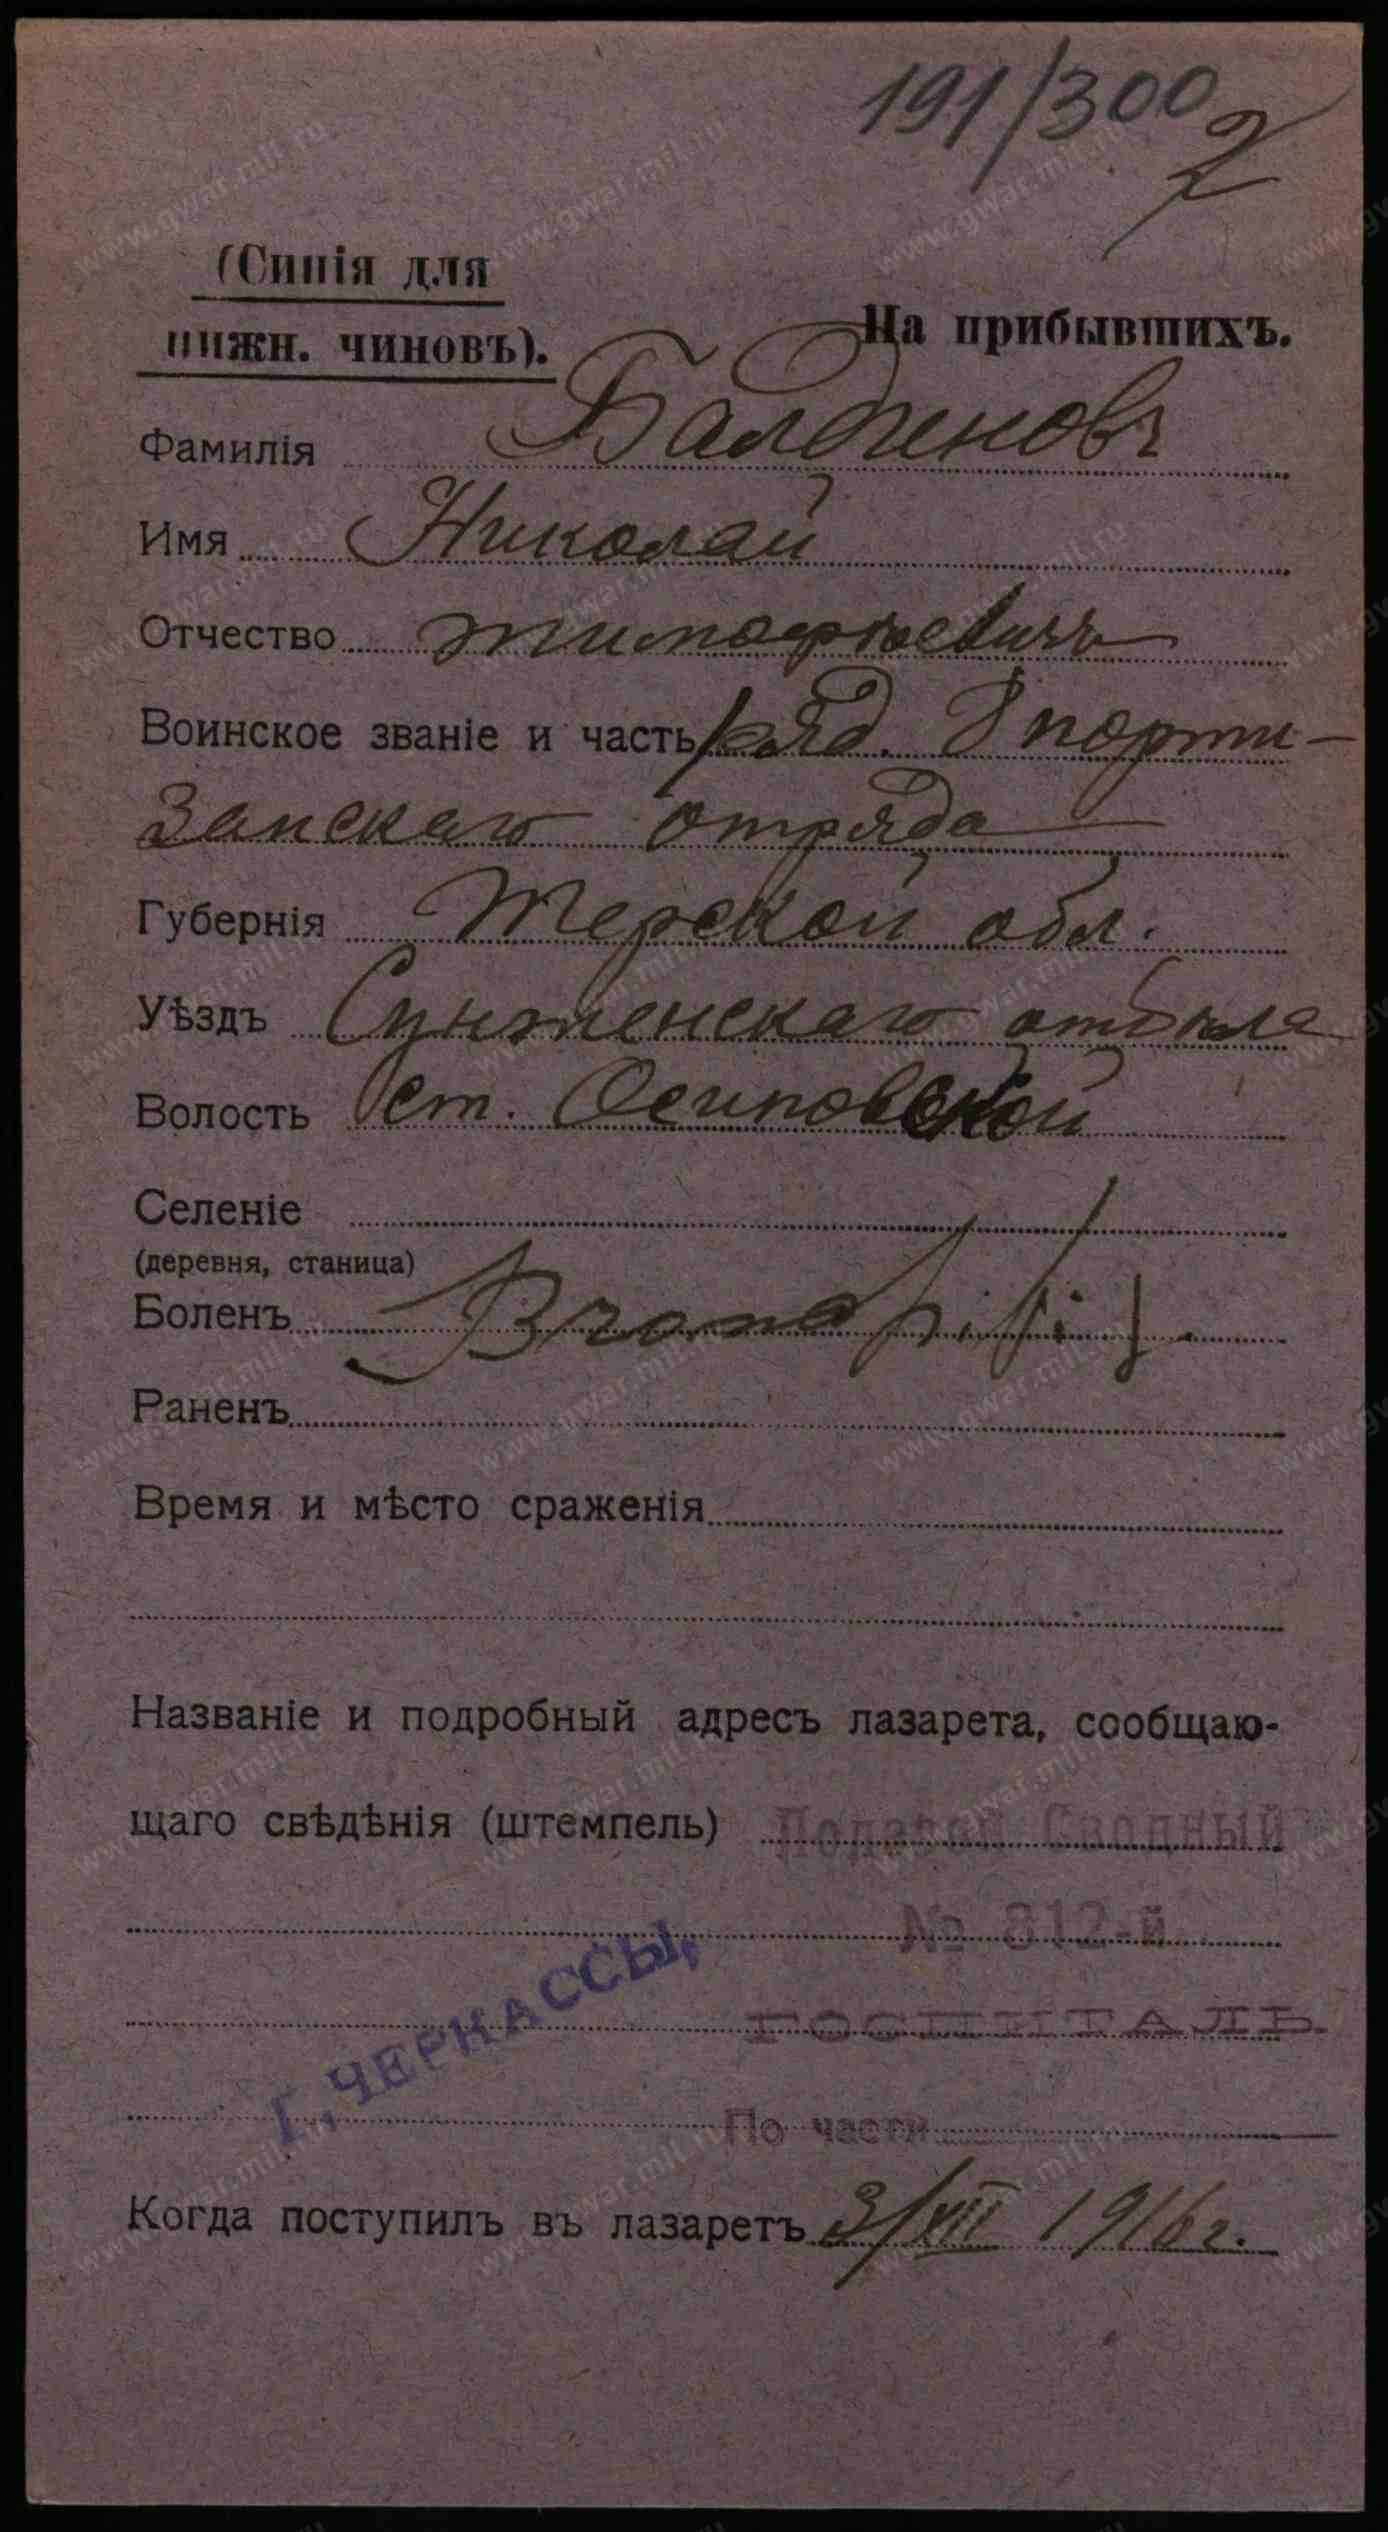 191/300
2
(Синія для
нижн. чиновъ).
На прибывшихъ.
Фамилія Балденовъ
Имя Николай
Отчество тимофѣевичъ
Воинское званіе и часть ряд. парти-
занскаго отряда
Губернія Терской обл.
Уѣздъ Сунженскаго отдѣла
Волость ст. Осиповской
Селеніе
(деревня, станица)
Боленъ
Раненъ
Время и мѣсто сраженія
Названіе и подробный адресъ лазарета, сообщаю-
щаго свѣдѣнія (штемпель) Полевой Сводный
№ 312-й
ГОСПИТАЛЬ.
Г. ЧЕРКАССЫ,
По части
Когда поступилъ въ лазаретъ 3/XII 1916 г.